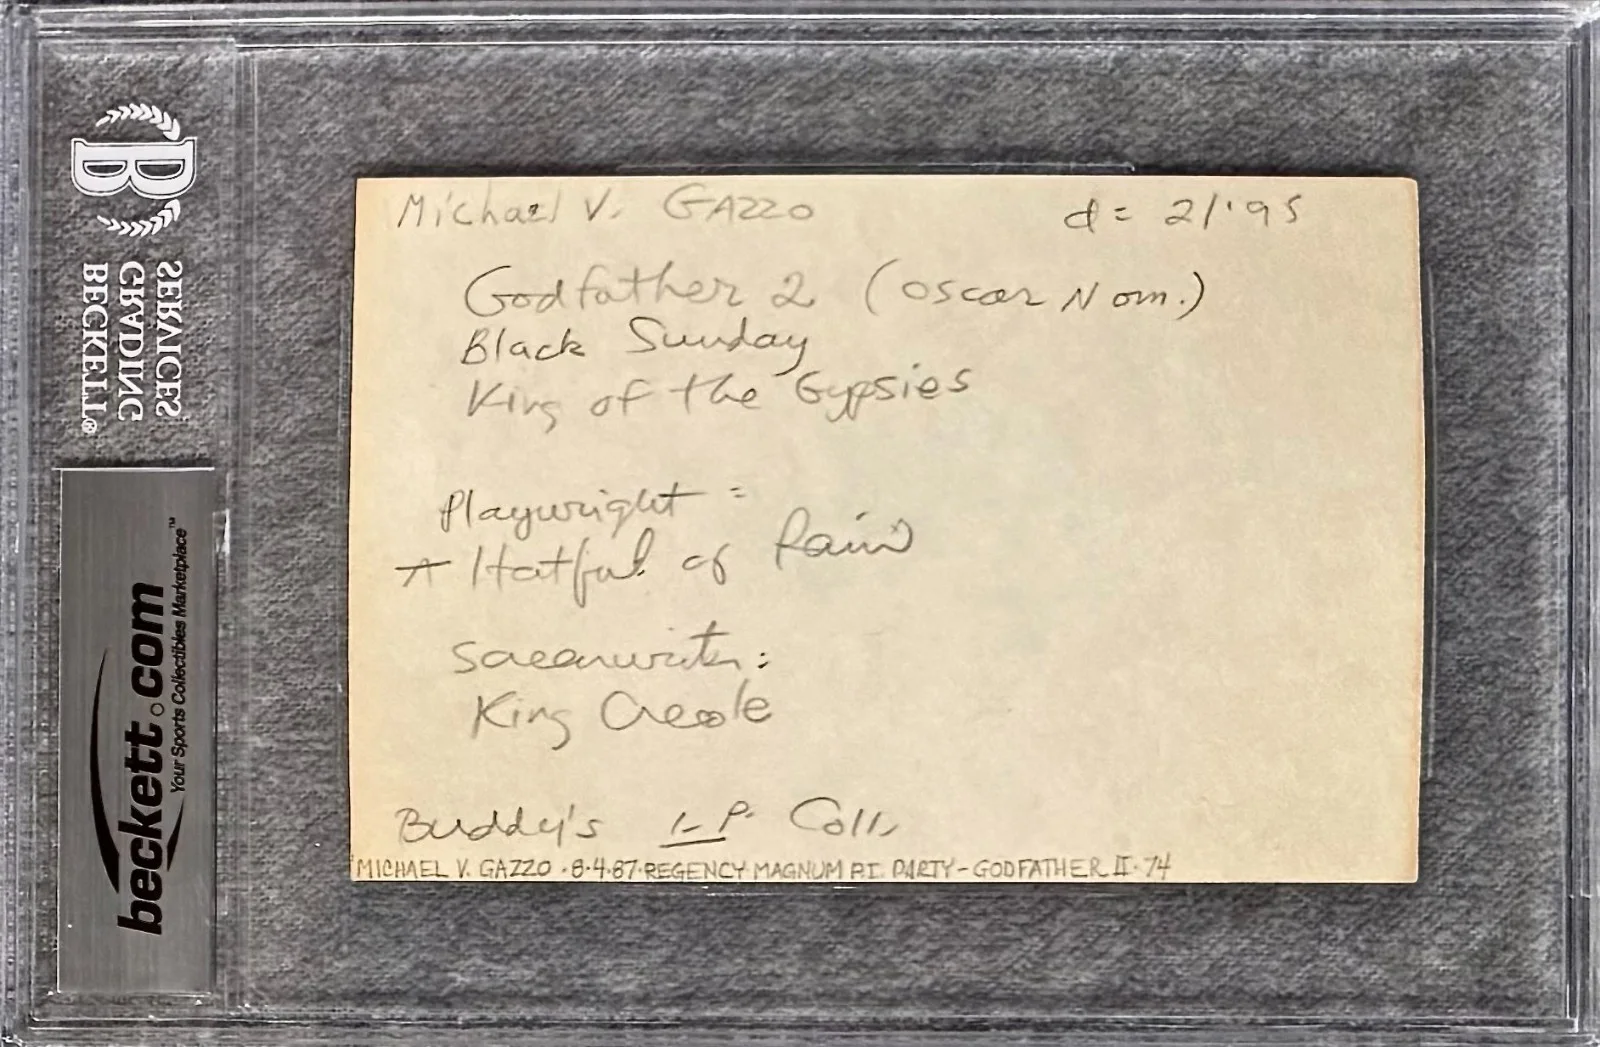 BECKETT®
GRADING
SERVICES
beckett.com
Your Sports Collectibles Marketplace™
Michael V. GAZZO d = 2/'95
Godfather 2 (Oscar Nom.)
Black Sunday
King of the Gypsies
Playwright =
A Hatful of Rain
Screenwriter:
King Creole
Buddy's I.P. Coll.
MICHAEL V. GAZZO · 8·4·87·REGENCY·MAGNUM P.I. PARTY - GODFATHER II·74